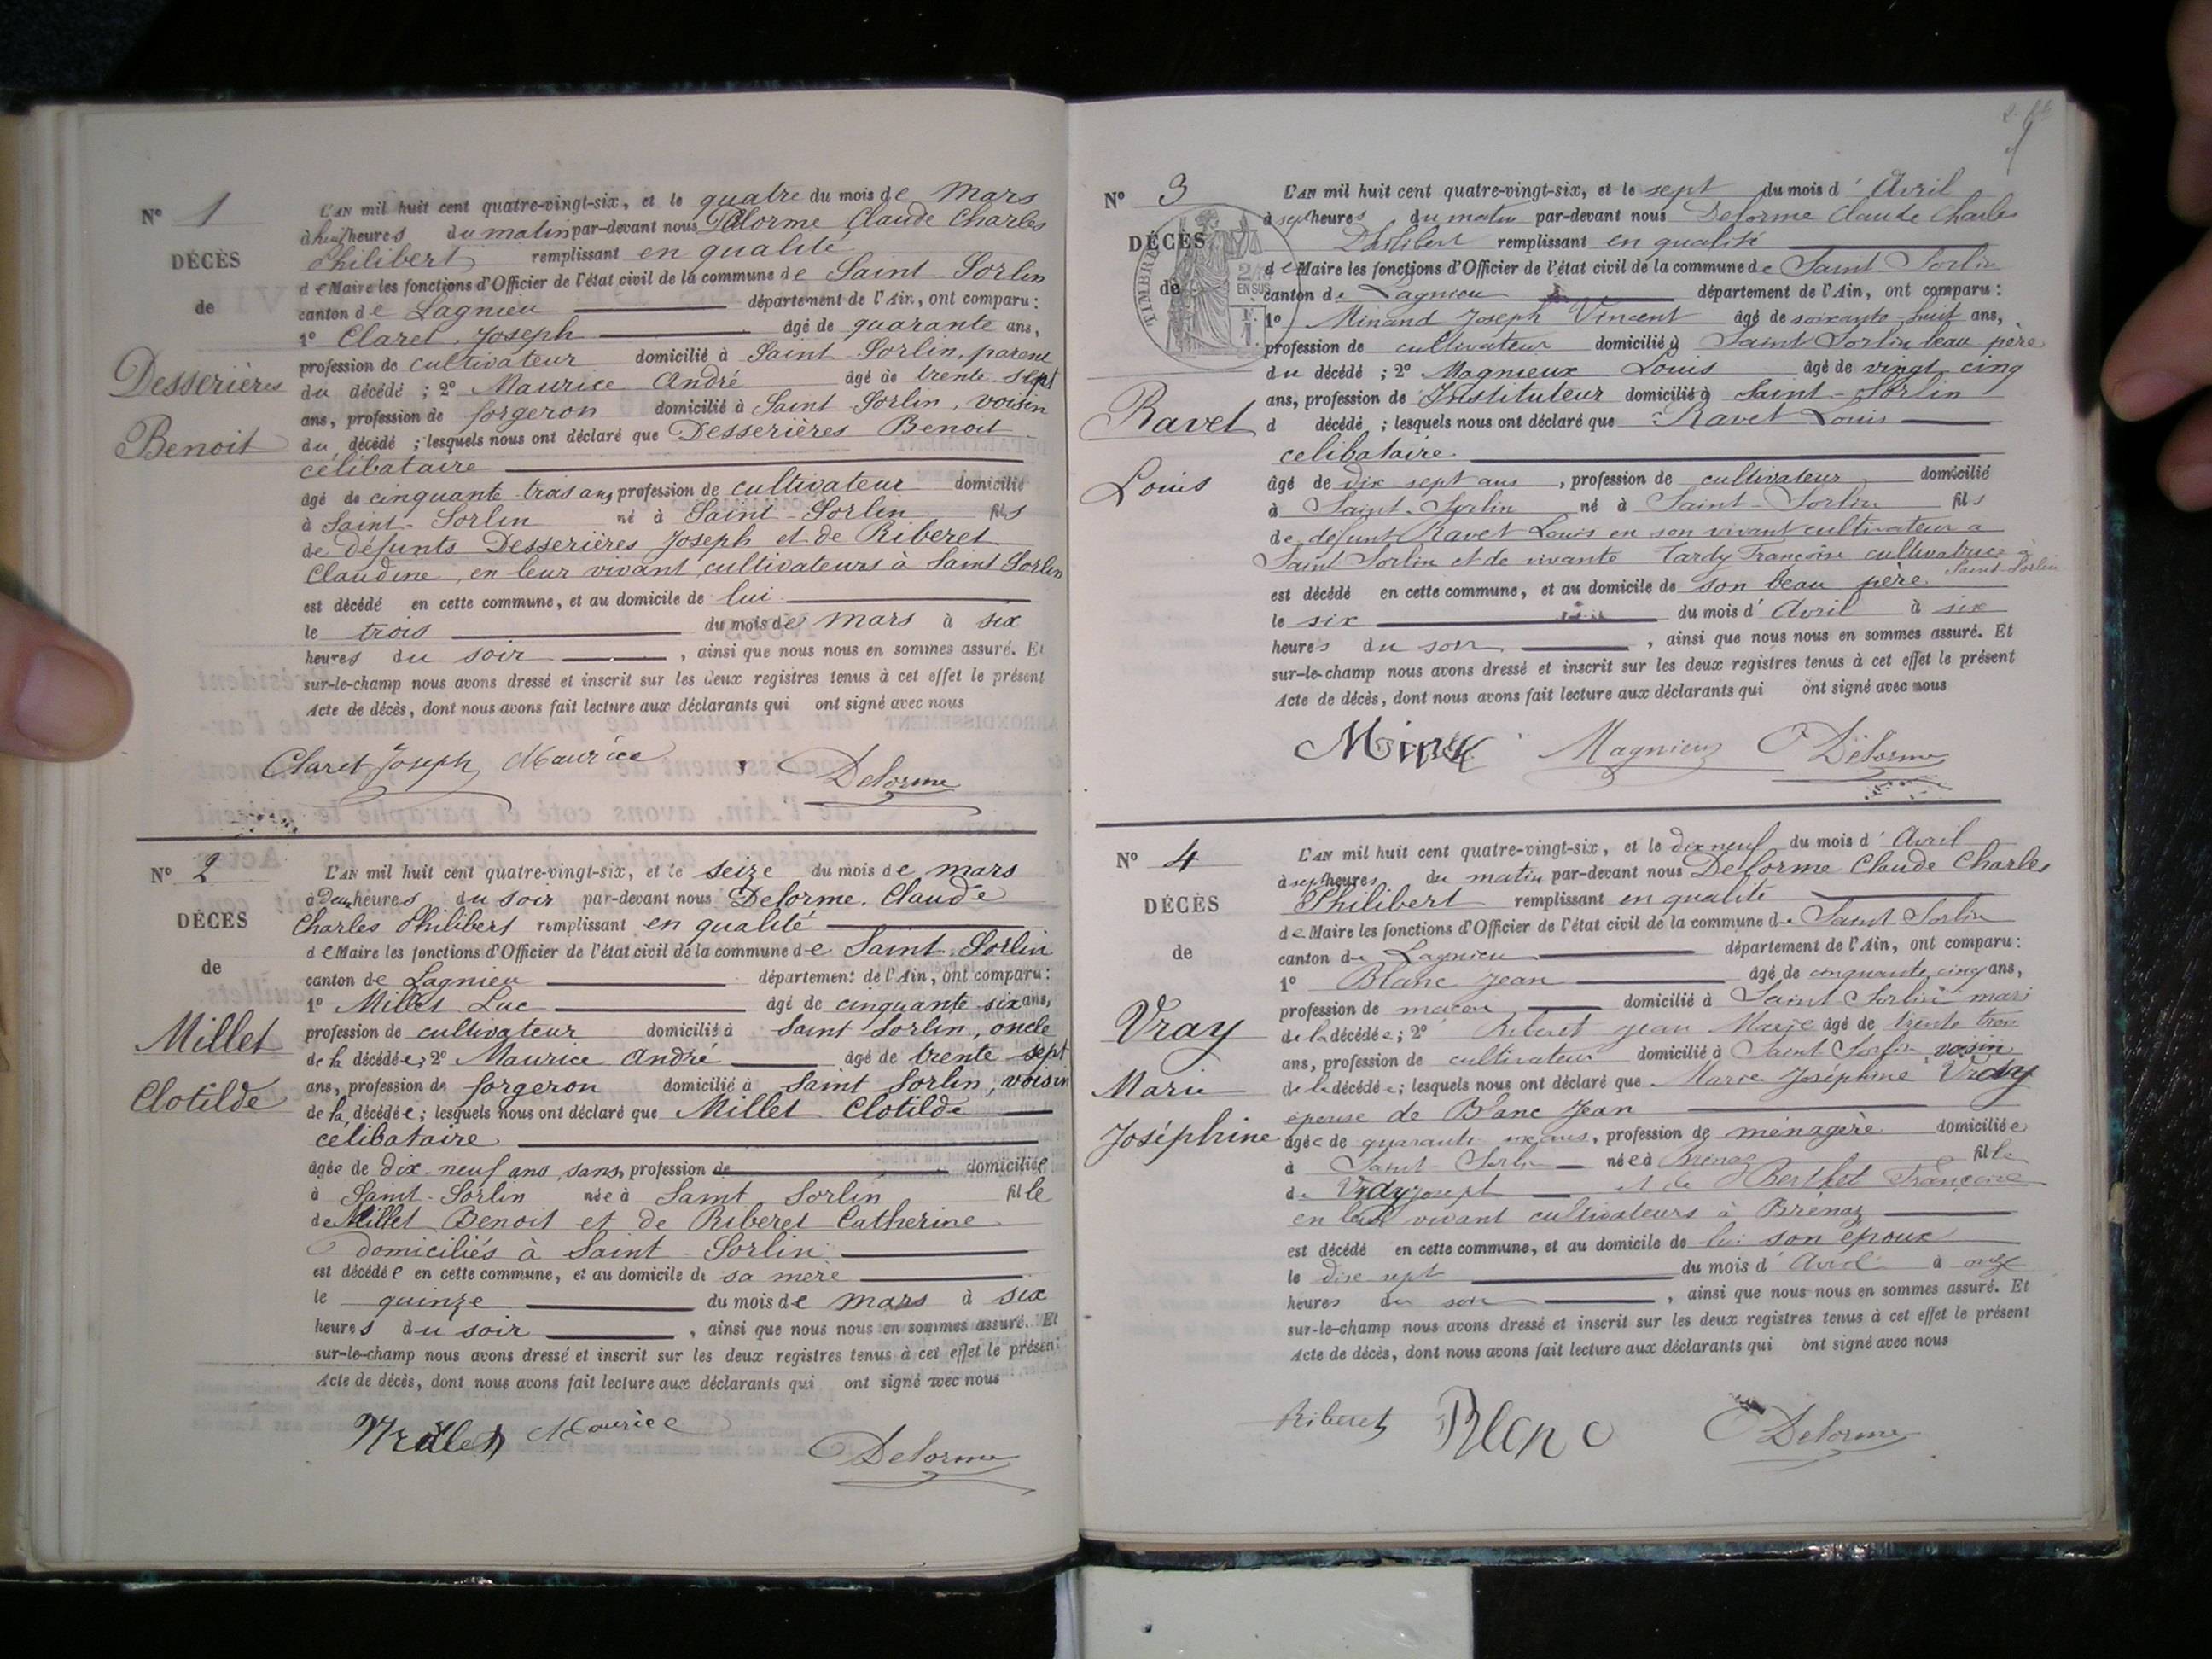 N° 1
DÉCÈS
de
Desserières
Benoit
L'AN mil huit cent quatre-vingt-six, et le quatre du mois de Mars
à huit heures du matin par-devant nous Delorme Claude Charles
Philibert remplissant en qualité
de Maire les fonctions d'Officier de l'état civil de la commune de Saint-Sorlin
canton de Lagnieu département de l'Ain, ont comparu :
1° Claret Joseph âgé de quarante ans,
profession de cultivateur domicilié à Saint-Sorlin, parent
du décédé ; 2° Maurice André âgé de trente sept
ans, profession de forgeron domicilié à Saint-Sorlin, voisin
du décédé ; lesquels nous ont déclaré que Desserières Benoit
célibataire
âgé de cinquante-trois ans, profession de cultivateur domicilié
à Saint-Sorlin né à Saint-Sorlin fils
de défunts Desserières Joseph et de Riberet
Claudine, en leur vivant cultivateurs à Saint Sorlin
est décédé en cette commune, et au domicile de lui
le trois du mois de Mars à six
heures du soir, ainsi que nous nous en sommes assuré. Et
sur-le-champ nous avons dressé et inscrit sur les deux registres tenus à cet effet le présent
Acte de décès, dont nous avons fait lecture aux déclarants qui ont signé avec nous
Claret Joseph Maurice Delorme
N° 2
DÉCÈS
de
Millet
Clotilde
L'AN mil huit cent quatre-vingt-six, et le seize du mois de mars
à Deux heures du soir par-devant nous Delorme Claude
Charles Philibert remplissant en qualité
de Maire les fonctions d'Officier de l'état civil de la commune de Saint-Sorlin
canton de Lagnieu département de l'Ain, ont comparu :
1° Millet Luc âgé de cinquante six ans,
profession de cultivateur domicilié à Saint Sorlin, oncle
de la décédée ; 2° Maurice André âgé de trente-sept
ans, profession de forgeron domicilié à Saint Sorlin, voisin
de la décédée ; lesquels nous ont déclaré que Millet Clotilde
célibataire
âgée de dix-neuf ans, sans profession de domiciliée
à Saint-Sorlin née à Saint Sorlin fille
de Millet Benoit et de Riberet Catherine
domiciliés à Saint-Sorlin
est décédée en cette commune, et au domicile de sa mère
le quinze du mois de mars à six
heures du soir, ainsi que nous nous en sommes assuré. Et
sur-le-champ nous avons dressé et inscrit sur les deux registres tenus à cet effet le présent
Acte de décès, dont nous avons fait lecture aux déclarants qui ont signé avec nous
Millet Maurice Delorme
N° 3
DÉCÈS
de
TIMBRE
EN SUS
Ravet
Louis
L'AN mil huit cent quatre-vingt-six, et le sept du mois d'Avril
à sept heures du matin par-devant nous Delorme Claude Charles
Philibert remplissant en qualité
de Maire les fonctions d'Officier de l'état civil de la commune de Saint-Sorlin
canton de Lagnieu département de l'Ain, ont comparu :
1° Minand Joseph Vincent âgé de soixante-huit ans,
profession de cultivateur domicilié à Saint Sorlin beau père
du décédé ; 2° Magnieux Louis âgé de vingt cinq
ans, profession de Instituteur domicilié à Saint-Sorlin
d décédé ; lesquels nous ont déclaré que Ravet Louis
célibataire
âgé de dix sept ans, profession de cultivateur domicilié
à Saint-Sorlin né à Saint-Sorlin fils
de défunt Ravet Louis en son vivant cultivateur à
Saint Sorlin et de vivante Tardy Françoise cultivatrice à
Saint-Sorlin
est décédé en cette commune, et au domicile de son beau père
le six du mois d'Avril à six
heures du soir, ainsi que nous nous en sommes assuré. Et
sur-le-champ nous avons dressé et inscrit sur les deux registres tenus à cet effet le présent
Acte de décès, dont nous avons fait lecture aux déclarants qui ont signé avec nous
Magnieux Delorme
N° 4
DÉCÈS
de
Vray
Marie
Joséphine
L'AN mil huit cent quatre-vingt-six, et le dix neuf du mois d'Avril
à sept heures du matin par-devant nous Delorme Claude Charles
Philibert remplissant en qualité
de Maire les fonctions d'Officier de l'état civil de la commune de Saint Sorlin
canton de Lagnieu département de l'Ain, ont comparu :
1° Blanc Jean âgé de cinquante cinq ans,
profession de maçon domicilié à Saint Sorlin mari
de la décédée ; 2° Riberet Jean Marie âgé de trente trois
ans, profession de cultivateur domicilié à Saint Sorlin voisin
de la décédée ; lesquels nous ont déclaré que Marie Joséphine Vray
épouse de Blanc Jean
âgée de quarante six ans, profession de ménagère domiciliée
à Saint-Sorlin née à Brénaz fille
de Vray Joseph et de Berthet Françoise
en leur vivant cultivateurs à Brénaz
est décédé en cette commune, et au domicile de lui son époux
le dix sept du mois d'Avril à onze
heures du soir, ainsi que nous nous en sommes assuré. Et
sur-le-champ nous avons dressé et inscrit sur les deux registres tenus à cet effet le présent
Acte de décès, dont nous avons fait lecture aux déclarants qui ont signé avec nous
Riberet Blanc Delorme